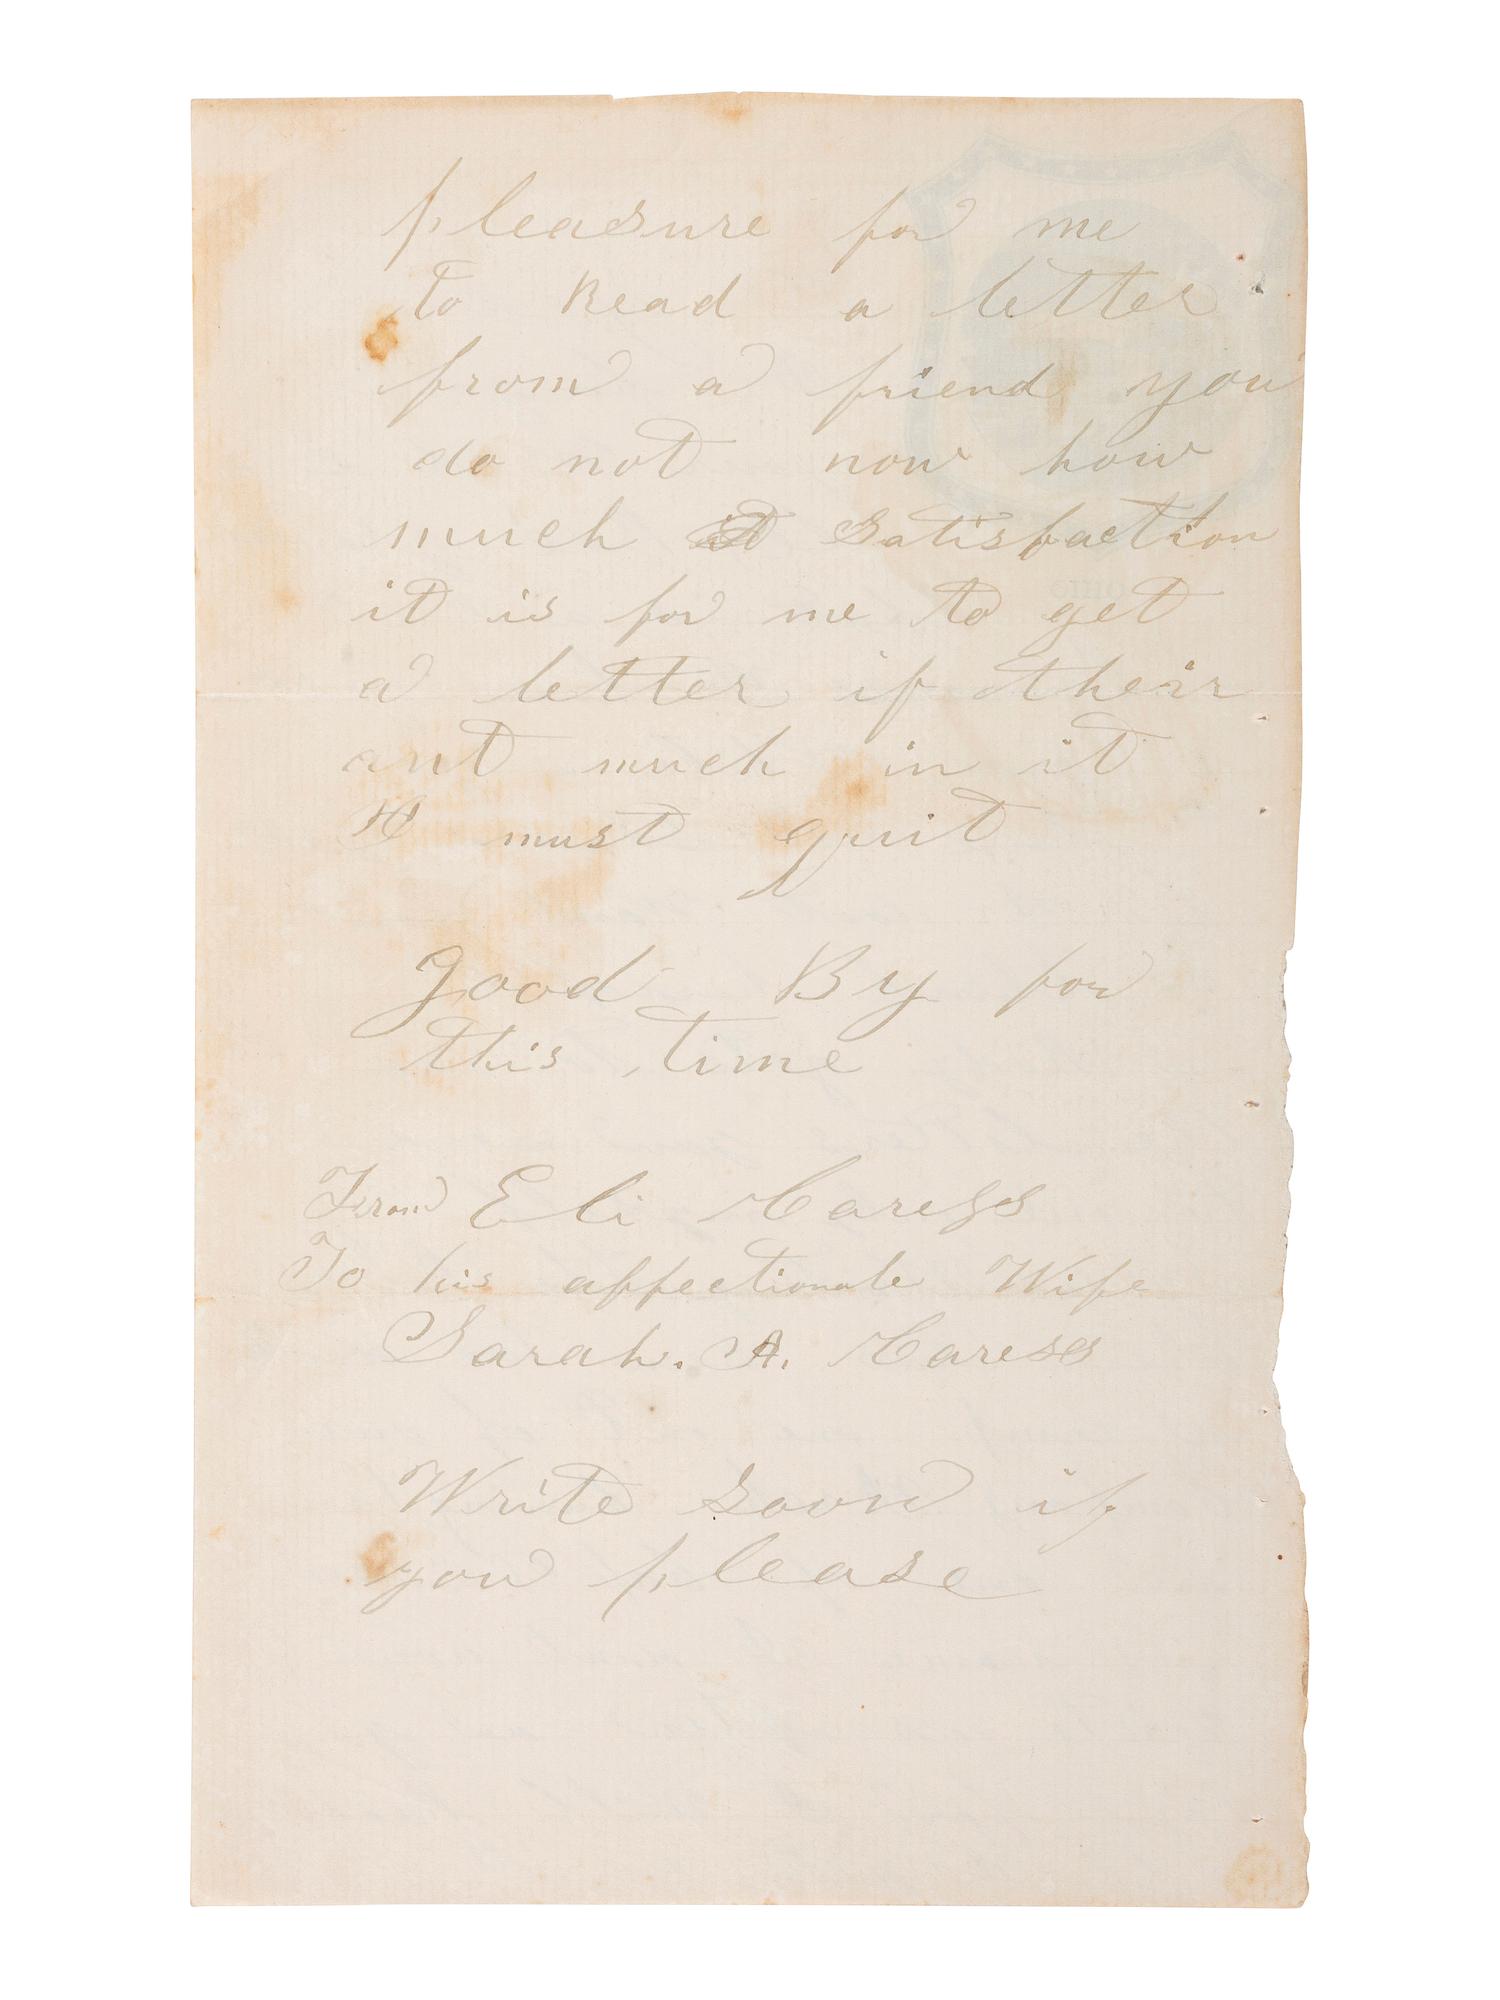 pleasure for me
to Read a letter
from a friend you
do not now how
much it Satisfaction
it is for me to get
a letter if their
ant much in it
I must quit
good By for
this time
From Eli Caress
To his affectionate Wife
Sarah. A. Caress
Write soon if
you please